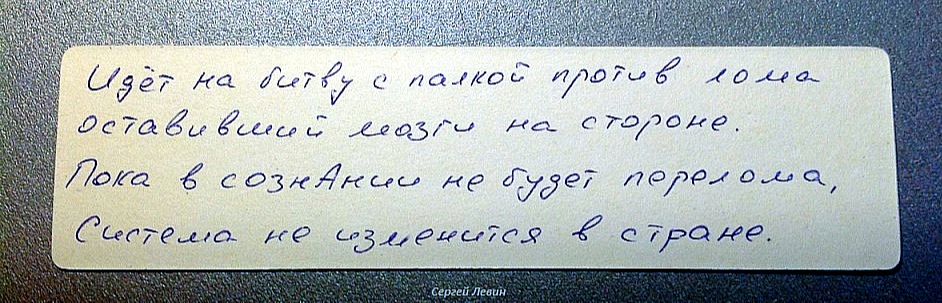 Идёт на битву с палкой против лома
оставивший мозги на стороне.
Пока в сознАнии не будет перелома,
Система не изменится в стране.
Сергей Левин